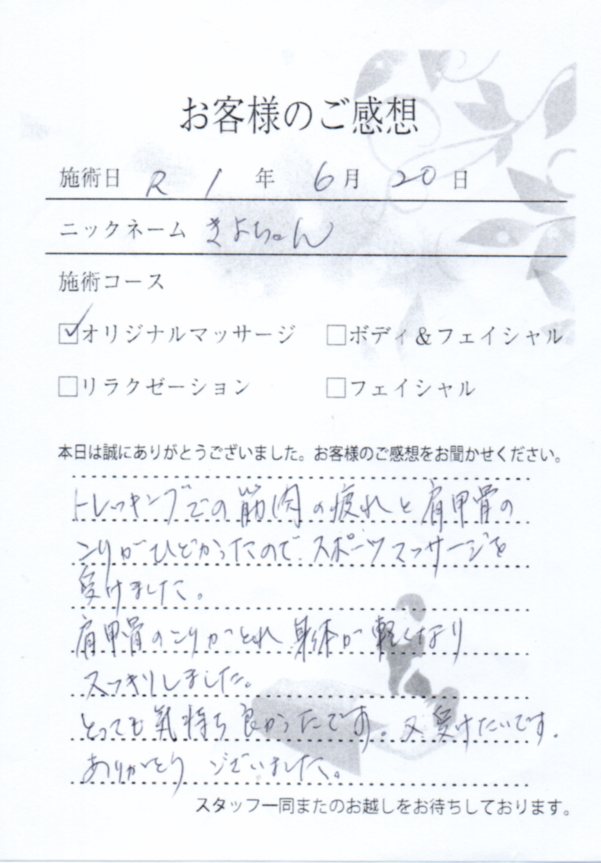 お客様のご感想
施術日 R 1 年 6月 20日
ニックネーム きよちゃん
施術コース
☑オリジナルマッサージ □ボディ&フェイシャル
□リラクゼーション □フェイシャル
本日は誠にありがとうございました。お客様のご感想をお聞かせください。
トレッキングでの筋肉の疲れと肩甲骨の
こりがひどかったので、スポーツマッサージを
受けました。
肩甲骨のこりがとれ 身体が軽くなり
スッキリしました。
とっても気持ち良かったです。又受けたいです。
ありがとうございました。
スタッフ一同またのお越しをお待ちしております。